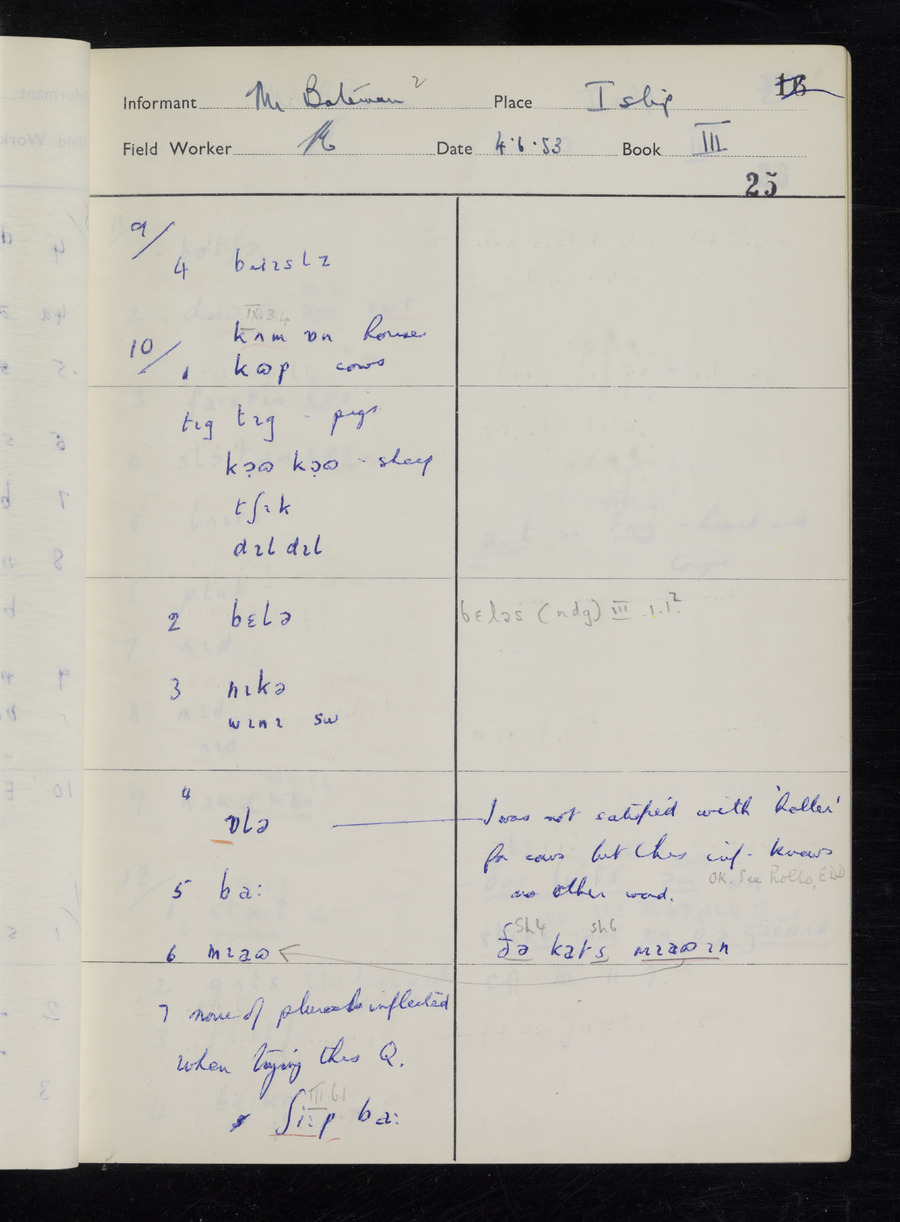 Informant Mr Bateman 2 Place Islip 16
Field Worker Date 4.6.53 Book III
25
9/
4 
IX.3.4
kʌm ɒn house
10/ 1 kʊp cows
tɪg tɪg - pigs
kəʊ kəʊ - sheep
tʃɪk
dɪl dɪl
2 bɛlə
bɛləs (ndg) III .1.1²
3 nɪkə
wɪnɪ sw
4
ɒlə I was not satisfied with 'holler'
for cows but this inf. knows
no other word. OK. See Hollo, EDD
5 ba:
Sh4 sh6
6 mɪaʊ ðə kats mɪaʊɪn
7 none of plurals inflected
when trying this Q.
III.6.1
ʃiɪp ba: